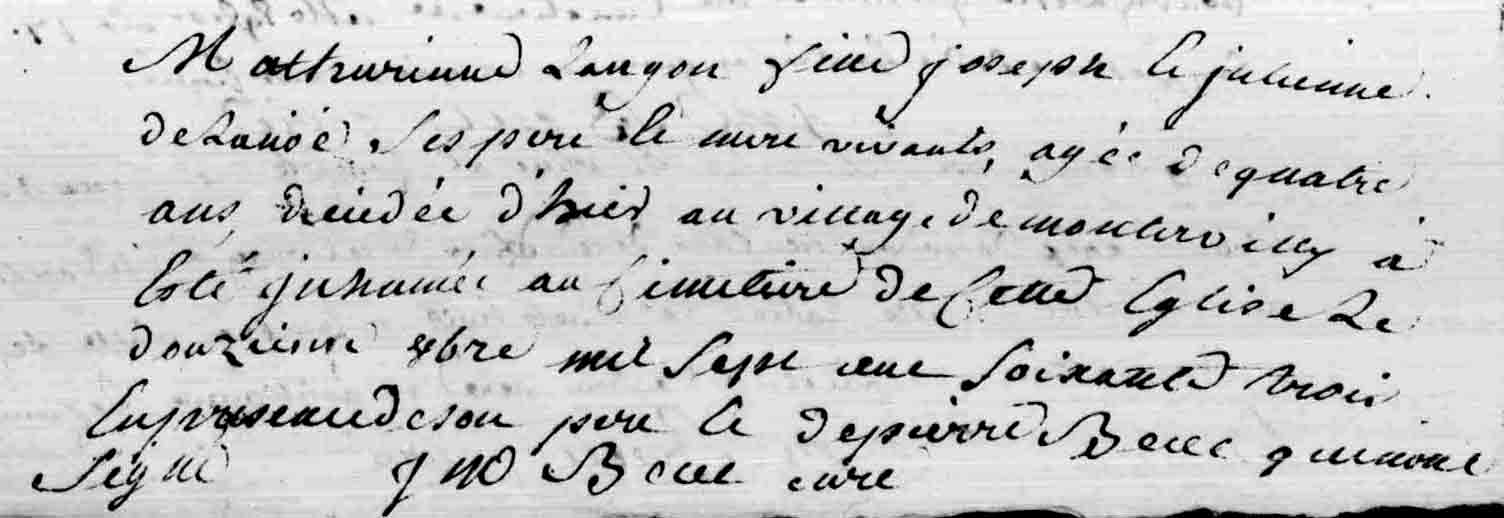 Mathurinne Langon fille joseph Et julienne
de Lanoé Ses pere Et mere vivants, agée de quatre
ans, decedée d'hier au village de montervily à
Esté juhumée au Cimetiere de Cette Eglise Le
douzieme xbre mil Sept cent Soixante trois
En presence de son pere Et de pierre Bece qui n'ont
Signé J M Bece curé